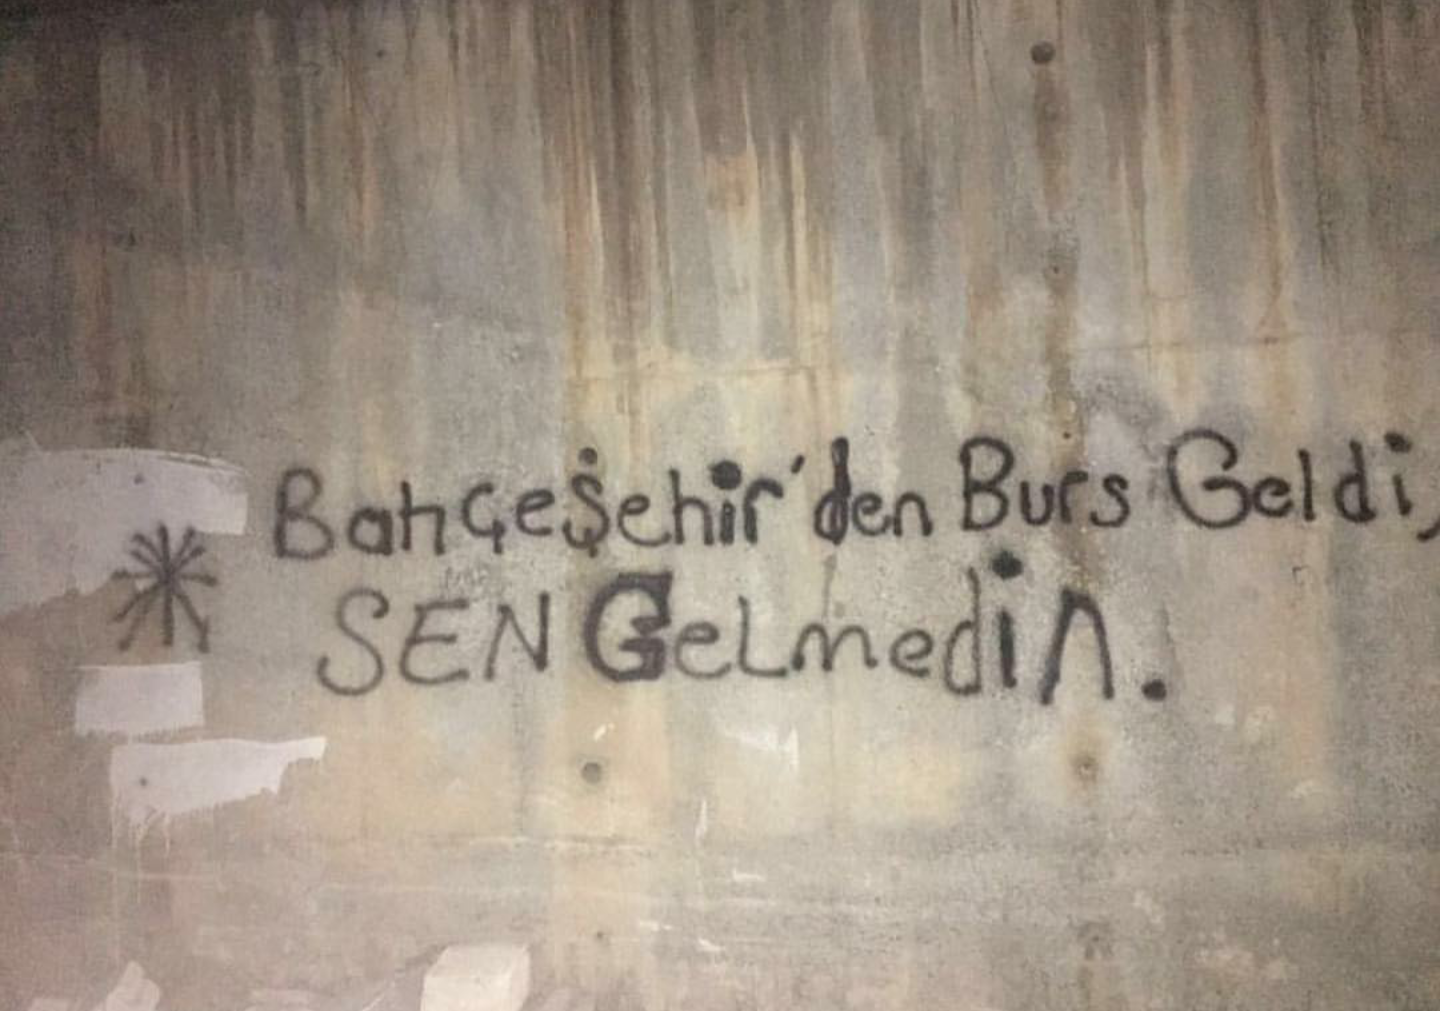 Bahçeşehir'den Burs Geldi,
SEN GeLmedin.